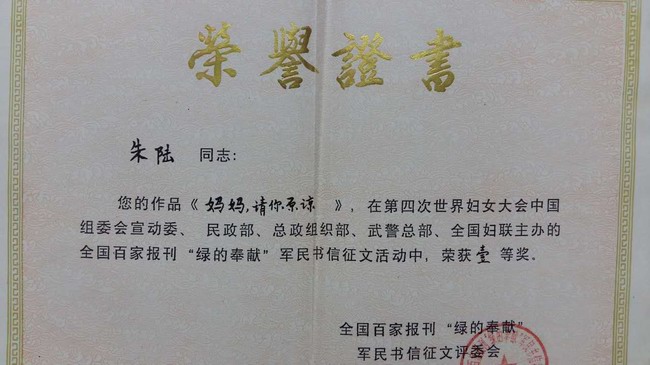 榮譽證書
朱陆 同志：
您的作品《妈妈,请你原谅》，在第四次世界妇女大会中国
组委会宣动委、 民政部、总政组织部、武警总部、全国妇联主办的
全国百家报刊“绿的奉献”军民书信征文活动中，荣获壹等奖。
全国百家报刊“绿的奉献”
军民书信征文评委会